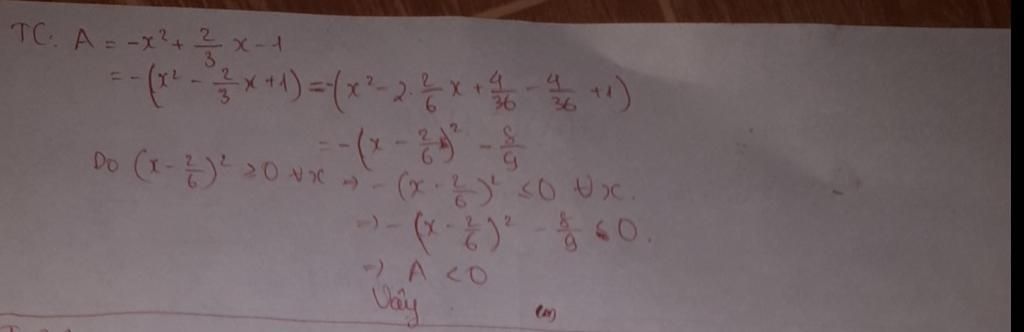 TC: A = -x² + 2/3 x - 1
= -(x² - 2/3 x + 1) = -(x² - 2. 2/6 x + 4/36 - 4/36 + 1)
= -(x - 2/6)² - 8/9
Do (x - 2/6)² ≥ 0 ∀x => -(x - 2/6)² ≤ 0 ∀x.
=> -(x - 2/6)² - 8/9 < 0.
=> A < 0
Vậy